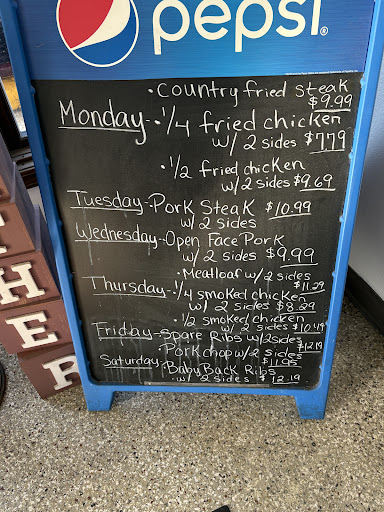 pepsi®
• Country fried steak
$9.99
Monday - • 1/4 fried chicken
w/ 2 sides $7.79
• 1/2 fried chicken
w/ 2 sides $9.69
Tuesday - Pork Steak $10.99
w/ 2 sides
Wednesday - Open Face Pork
$9.99
• Meatloaf w/ 2 sides
$11.29
Thursday - 1/4 smoked chicken
w/ 2 sides $8.29
• 1/2 smoked chicken
w/ 2 sides $10.49
Friday - Spare Ribs w/ 2 sides
$12.19
• Pork chop w/ 2 sides
$11.95
Saturday - Baby Back Ribs
w/ 2 sides $12.19
T H
H
E
R